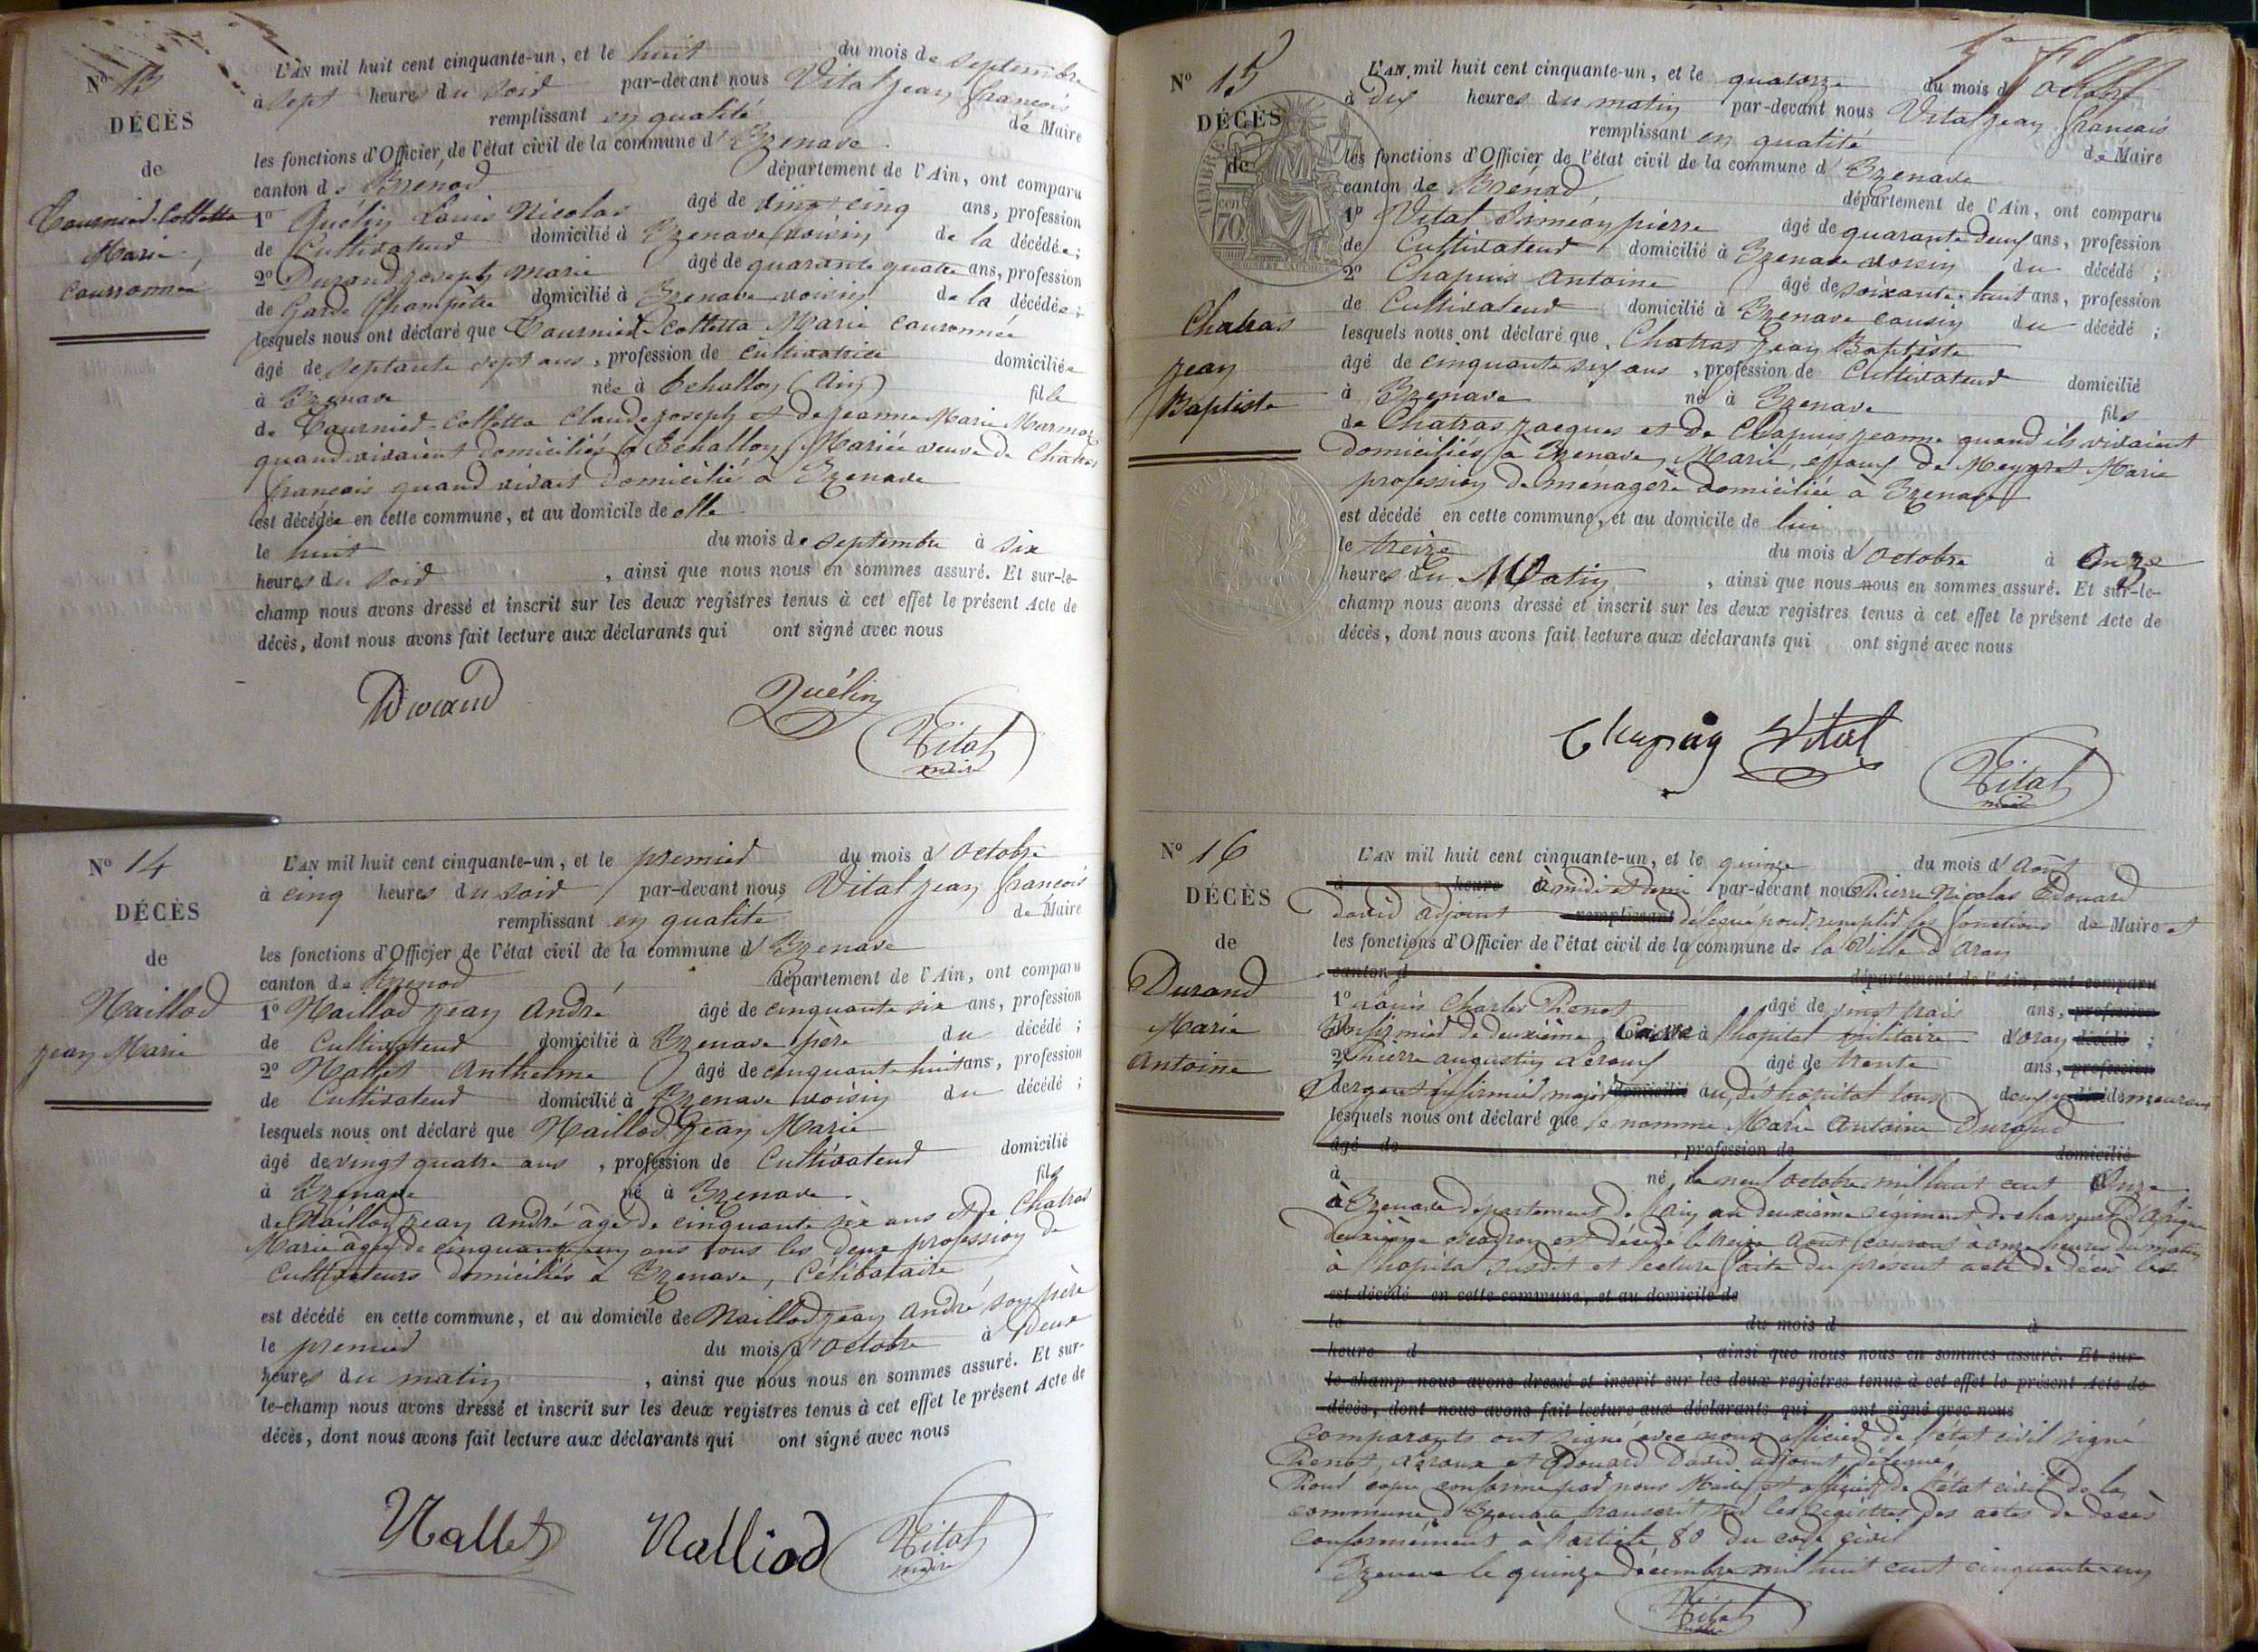 N° 13
DÉCÈS
de
Tournier-Colletta
Marie
Couronnée
L'AN mil huit cent cinquante-un, et le huit du mois de septembre
à sept heures du soir par-devant nous Vital jean françois
remplissant en qualité de Maire
les fonctions d'Officier de l'état civil de la commune d'Izenave
canton de Brénod département de l'Ain, ont comparu
1° Quélin Louis Nicolas âgé de vingt cinq ans, profession
de Cultivateur domicilié à Izenave voisin de la décédée;
2° Durand joseph marie âgé de quarante quatre ans, profession
de Garde Champêtre domicilié à Izenave voisin de la décédée;
lesquels nous ont déclaré que Tournier-Colletta Marie Couronnée
âgé de septante sept ans, profession de Cultivatrice domiciliée
à Izenave née à Echallon (Ain) fille
de Tournier-Colletta Claude joseph et de jeanne Marie Marmoz
quand vivaient domiciliés à Echallon, Mariée veuve de Chatras
francois quand vivait domicilié à Izenave
est décédée en cette commune, et au domicile de elle
le huit du mois de septembre à six
heures du soir, ainsi que nous nous en sommes assuré. Et sur-le-
champ nous avons dressé et inscrit sur les deux registres tenus à cet effet le présent Acte de
décès, dont nous avons fait lecture aux déclarants qui ont signé avec nous
Durand Quélin Vital
maire
N° 14
DÉCÈS
de
Maillod
jean Marie
L'AN mil huit cent cinquante-un, et le premier du mois d'Octobre
à cinq heures du soir par-devant nous Vital jean françois
remplissant en qualité de Maire
les fonctions d'Officier de l'état civil de la commune d'Izenave
canton de Brenod département de l'Ain, ont comparu
1° Maillod jean André âgé de cinquante six ans, profession
de Cultivateur domicilié à Izenave père du décédé;
2° Mallet Anthelme âgé de cinquante huit ans, profession
de Cultivateur domicilié à Izenave voisin du décédé;
lesquels nous ont déclaré que Maillod jean Marie
âgé de vingt quatre ans, profession de Cultivateur domicilié
à Izenave né à Izenave fils
de Maillod jean André âgé de cinquante six ans et de Chatras
Marie âgée de cinquante un ans tous les deux profession de
Cultivateurs domiciliés à Izenave, Célibataire
est décédé en cette commune, et au domicile de Maillod jean André son père
le premier du mois d'Octobre à Deux
heures du matin, ainsi que nous nous en sommes assuré. Et sur-
le-champ nous avons dressé et inscrit sur les deux registres tenus à cet effet le présent Acte de
décès, dont nous avons fait lecture aux déclarants qui ont signé avec nous
Mallet Malliod Vital
maire
N° 15
DÉCÈS
de
Chatras
jean
Baptiste
L'AN mil huit cent cinquante-un, et le quatorze du mois d'Octobre
à dix heures du matin par-devant nous Vital jean francais
remplissant en qualité de Maire
les fonctions d'Officier de l'état civil de la commune d'Izenave
canton de Brénod département de l'Ain, ont comparu
1° Vital Simeon pierre âgé de quarante deux ans, profession
de Cultivateur domicilié à Izenave voisin du décédé;
2° Chapuis Antoine âgé de soixante huit ans, profession
de Cultivateur domicilié à Izenave cousin du décédé;
lesquels nous ont déclaré que Chatras jean Baptiste
âgé de cinquante six ans, profession de Cultivateur domicilié
à Izenave né à Izenave fils
de Chatras jacques et de Chapuis jeanne quand ils vivaient
domiciliés à Izenave, Marié, epoux de Meygret Marie
profession de ménagère domiciliée à Izenave
est décédé en cette commune, et au domicile de lui
le treize du mois d'Octobre à Onze
heures du Matin, ainsi que nous nous en sommes assuré. Et sur-le-
champ nous avons dressé et inscrit sur les deux registres tenus à cet effet le présent Acte de
décès, dont nous avons fait lecture aux déclarants qui ont signé avec nous
Vital Vital
maire
N° 16
DÉCÈS
de
Durand
Marie
Antoine
L'AN mil huit cent cinquante-un, et le quinze du mois d'Aout
à heure à midi et demi par-devant nous Pierre Nicolas Edouard
David adjoint remplissant délégué pour remplir les fonctions de Maire et
les fonctions d'Officier de l'état civil de la commune de la Ville d'Oran
canton d département de l'Ain, ont comparu
1° Louis Charles Thenot âgé de vingt trois ans, profession
Infirmier de deuxième Classe à l'hopital militaire d'oran décédé;
2° Pierre augustin Leroux âgé de trente ans, profession
Sergent infirmier major domicilié au dit hopital tous deux y décédé demeurant
lesquels nous ont déclaré que le nomme Marie Antoine Durand
âgé de, profession de domicilié
à né le neuf octobre mil huit cent Onze
à Izenave département de l'ain au deuxième régiment de chasseurs d'afrique
deuxième escadron est décédé le treize Aout courant à onze heures du matin
à l'hopital susdit et lecture faite du présent acte de décès les
est décédé en cette commune, et au domicile de
le du mois d à
heure d, ainsi que nous nous en sommes assuré. Et sur-
le-champ nous avons dressé et inscrit sur les deux registres tenus à cet effet le présent Acte de
décès, dont nous avons fait lecture aux déclarants qui ont signé avec nous
Comparants ont signé avec nous officier de l'état civil signé
Thenot, Leroux et Edouard David adjoint délégué
Pour copie conforme par nous Maire et officier de l'état civil de la
commune d'Izenave transcrit sur les registres des actes de décès
conformément à l'article 80 du code civil
Izenave le quinze décembre mil huit cent cinquante un
Vital
maire